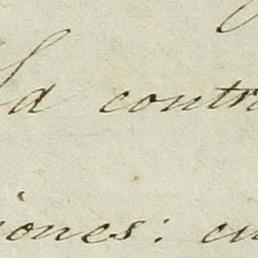 la contr
iones: en